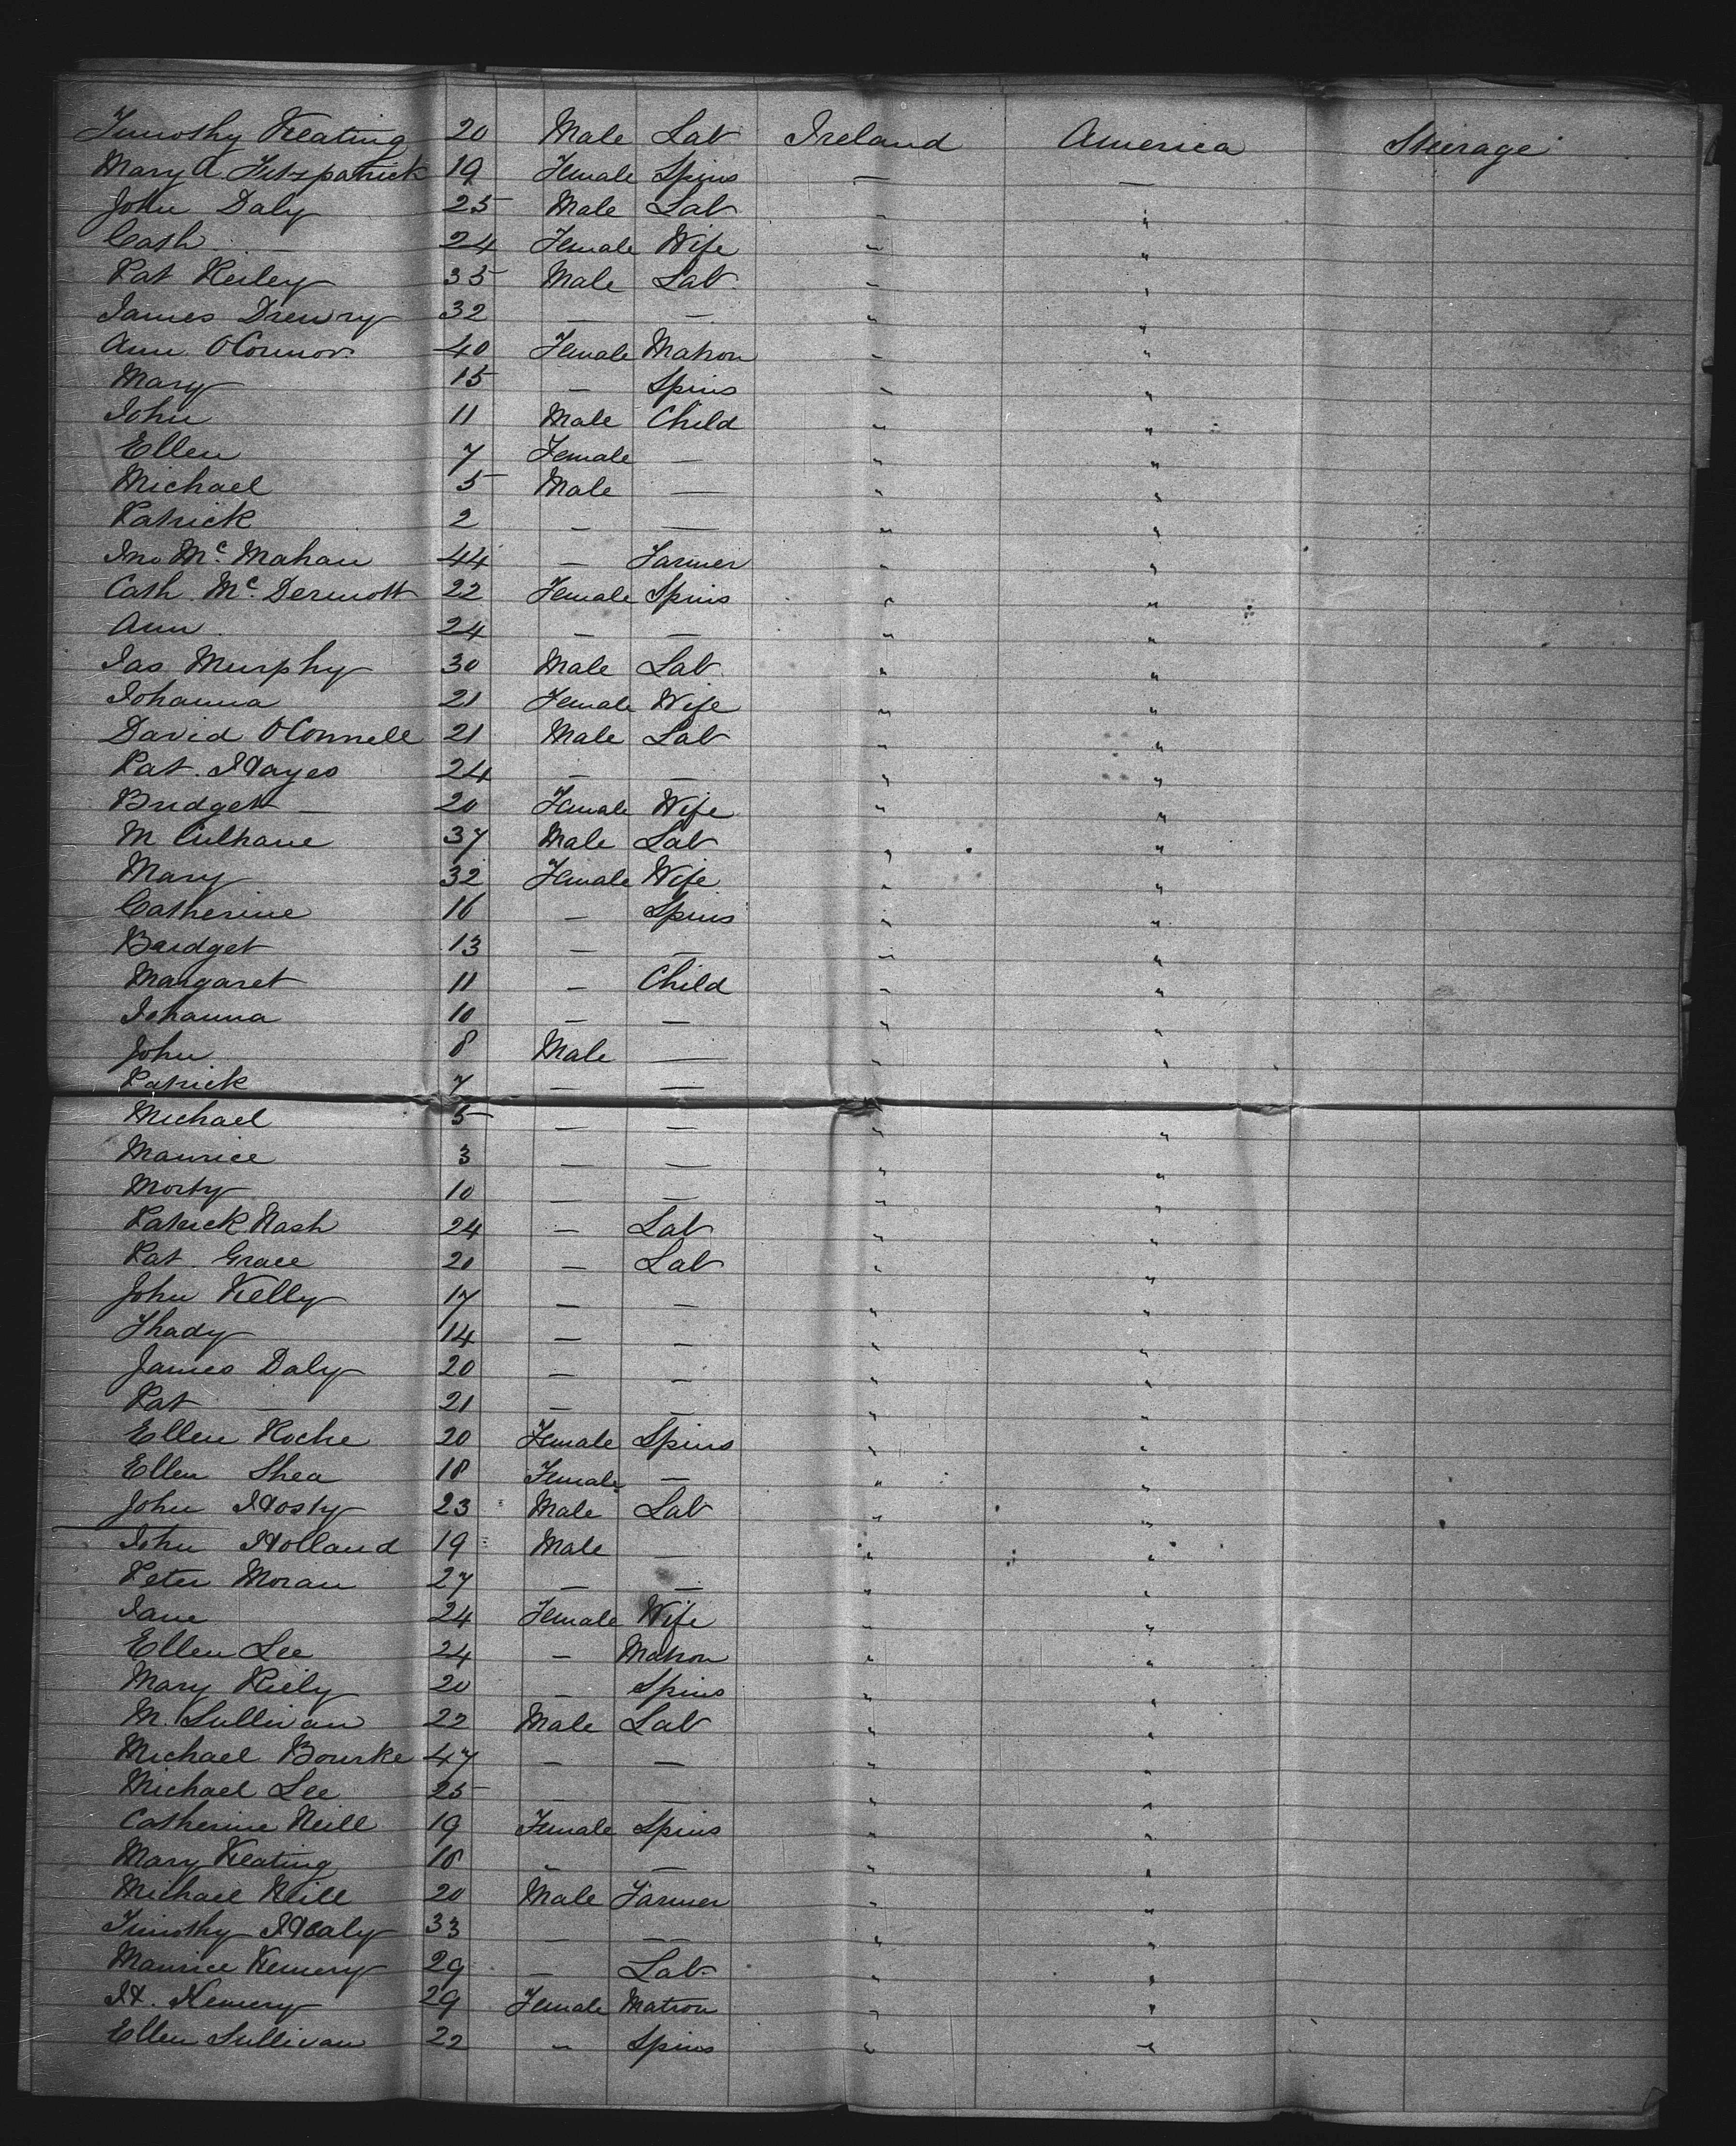 Timothy Keating 20 Male Lab Ireland America Steerage
Mary A Fitzpatrick 19 Female Spins — —
John Daly 25 Male Lab " "
Cath — 24 Female Wife " "
Pat Keiley 35 Male Lab " "
James Drewry 32 — — " "
Ann O'Connor 40 Female Matron " "
Mary 15 — Spins " "
John 11 Male Child " "
Ellen 7 Female — " "
Michael 5 Male — " "
Patrick 2 — — " "
Jno Mc. Mahan 44 — Farmer " "
Cath Mc. Dermott 22 Female Spins " "
Ann 24 — — " "
Jas Murphy 30 Male Lab " "
Johanna 21 Female Wife " "
David O'Connell 21 Male Lab " "
Pat. Hayes 24 — — " "
Bridget — 20 Female Wife " "
M Culhane 37 Male Lab " "
Mary 32 Female Wife " "
Catherine 16 — Spins " "
Bridget 13 — — " "
Margaret 11 — Child " "
Johanna 10 — — " "
John 8 Male — " "
Patrick 7 — —
Michael 5 — — " "
Maurice 3 — — " "
Morty 10 — — " "
Patrick Nash 24 — Lab " "
Pat. Grace 20 — Lab " "
John Kelly 17 — — " "
Thady 14 — — " "
James Daly 20 — — " "
Pat — 21 — — " "
Ellen Roche 20 Female Spins " "
Ellen Shea 18 Female — " "
John Hosty 23 Male Lab " "
John Holland 19 Male — " "
Peter Moran 27 — — " "
Jane 24 Female Wife " "
Ellen Lee 24 — Matron " "
Mary Kiely 20 — Spins " "
M. Sullivan 22 Male Lab " "
Michael Bourke 47 — — " "
Michael Lee 25 — — " "
Catherine Neill 19 Female Spins " "
Mary Keating 18 — — " "
Michael Neill 20 Male Farmer " "
Timothy Healy 33 — — " "
Maurice Kemery 29 — Lab " "
H. Kemery 29 Female Matron " "
Ellen Sullivan 22 " Spins " "